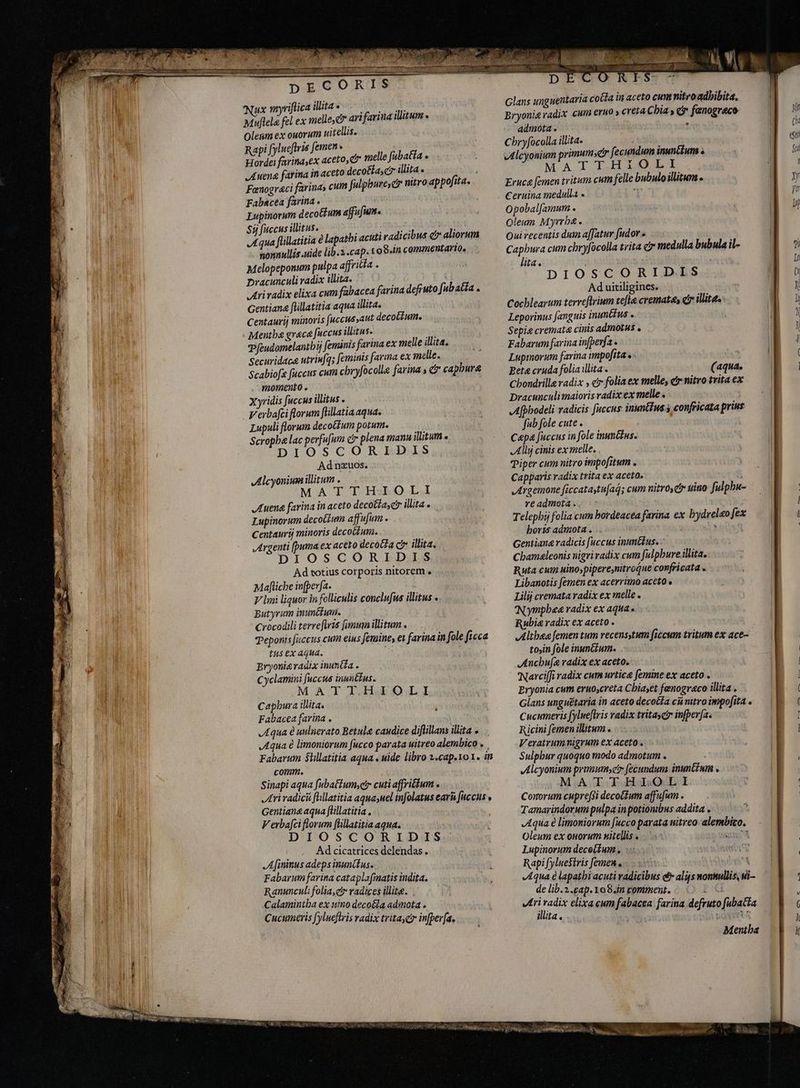 DECORIS
Nux myristica illita.
Mustelæ fel ex melle, & ari farina illitum.
Oleum ex ouorum uitellis.
Rapi syluestris semen.
Hordei farina, ex aceto, & melle subacta.
Auenæ farina in aceto decocta, & illita.
Fœnograci farina, cum sulphure, & nitro apposita.
Fabacea farina.
Lupinorum decoctum affusum.
Sij succus illitus.
Aqua stillatitia è lapathi acuti radicibus & aliorum
nonnullis. uide lib.2. cap. 108. in commentario.
Melopeponum pulpa affricta.
Dracunculi radix illita.
Ari radix elixa cum fabacea farina defruto subacta.
Gentianæ stillatitia aqua illita.
Centaurij minoris succus, aut decoctum.
Menthæ græcæ succus illitus.
Pseudomelanthij seminis farina ex melle illita.
Securidacæ utriusq; seminis farina ex melle.
Scabiosæ succus cum chrysocollæ farina, & caphuræ
momento.
Xyridis succus illitus.
Verbasci florum stillatia aqua.
Lupuli florum decoctum potum.
Scrophæ lac perfusum & plena manu illitum.
DIOSCORIDIS
Ad næuos.
Alcyonium illitum.
MATTHIOLI
Auenæ farina in aceto decocta, & illita.
Lupinorum decoctum affusum.
Centaurij minoris decoctum.
Argenti spuma ex aceto decocta & illita.
DIOSCORIDIS
Ad totius corporis nitorem.
Mastiche inspersa.
Vlmi liquor in folliculis conclusus illitus.
Butyrum inunctum.
Crocodili terrestris fimum illitum.
Peponis succus cum eius semine, et farina in sole sicca
tus ex aqua.
Bryoniæ radix inuncta.
Cyclamini succus inunctus.
MATTHIOLI
Caphura illita.
Fabacea farina.
Aqua è uulnerato Betulæ caudice distillans illita.
Aqua è limoniorum succo parata uitreo alembico.
Fabarum stillatitia aqua. uide libro 2. cap. 101. in
comm.
Sinapi aqua subactum, & cuti affrictum.
Ari radicū stillatitia aqua, uel insolatus earū succus.
Gentianæ aqua stillatitia.
Verbasci florum stillatitia aqua.
DIOSCORIDIS
Ad cicatrices delendas.
Asininus adeps inunctus.
Fabarum farina cataplasmatis indita.
Ranunculi folia, & radices illitæ.
Calamintha ex uino decocta admota.
Cucumeris syluestris radix trita, & inspersa.
DECORIS
Glans unguentaria cocta in aceto cum nitro adhibita.
Bryoniæ radix cum eruo, creta Chia, & fœnogræco
admota.
Chrysocolla illita.
Alcyonium primum, & secundum inunctum.
MATTHIOLI
Erucæ semen tritum cum felle bubulo illitum.
Ceruina medulla.
Opobalsamum.
Oleum Myrrhæ.
Oui recentis dum assatur sudor.
Caphura cum chrysocolla trita & medulla bubula il-
lita.
DIOSCORIDIS
Ad uitiligines.
Cochlearum terrestrium testæ crematæ, & illitæ.
Leporinus sanguis inunctus.
Sepiæ crematæ cinis admotus.
Fabarum farina inspersa.
Lupinorum farina imposita.
Betæ cruda folia illita. (aqua.
Chondrillæ radix, & folia ex melle, & nitro trita ex
Dracunculi maioris radix ex melle.
Asphodeli radicis succus inunctus, confricata prius
sub sole cute.
Cæpæ succus in sole inunctus.
Allij cinis ex melle.
Piper cum nitro impositum.
Capparis radix trita ex aceto.
Argemone siccata, tusaq; cum nitro, & uino sulphu-
re admota.
Telephij folia cum hordeacea farina ex hydrelæo sex
horis admota.
Gentianæ radicis succus inunctus.
Chamæleonis nigri radix cum sulphure illita.
Ruta cum uino, pipere, nitroque confricata.
Libanotis semen ex acerrimo aceto.
Lilij cremata radix ex melle.
Nympheæ radix ex aqua.
Rubiæ radix ex aceto.
Altheæ semen tum recens, tum siccum tritum ex ace-
to, in sole inunctum.
Anchusæ radix ex aceto.
Narcissi radix cum urticæ semine ex aceto.
Bryonia cum eruo, creta Chia, et fœnogræco illita.
Glans unguētaria in aceto decocta cū nitro imposita.
Cucumeris syluestris radix trita, & inspersa.
Ricini semen illitum.
Veratrum nigrum ex aceto.
Sulphur quoquo modo admotum.
Alcyonium primum, & secundum inunctum.
MATTHIOLI
Conorum cupressi decoctum affusum.
Tamarindorum pulpa in potionibus addita.
Aqua è limoniorum succo parata uitreo alembico.
Oleum ex ouorum uitellis.
Lupinorum decoctum.
Rapi syluestris semen.
Aqua è lapathi acuti radicibus & alijs nonnullis, ui-
de lib. 2. cap. 108. in comment.
Ari radix elixa cum fabacea farina defruto subacta
illita.
Mentha